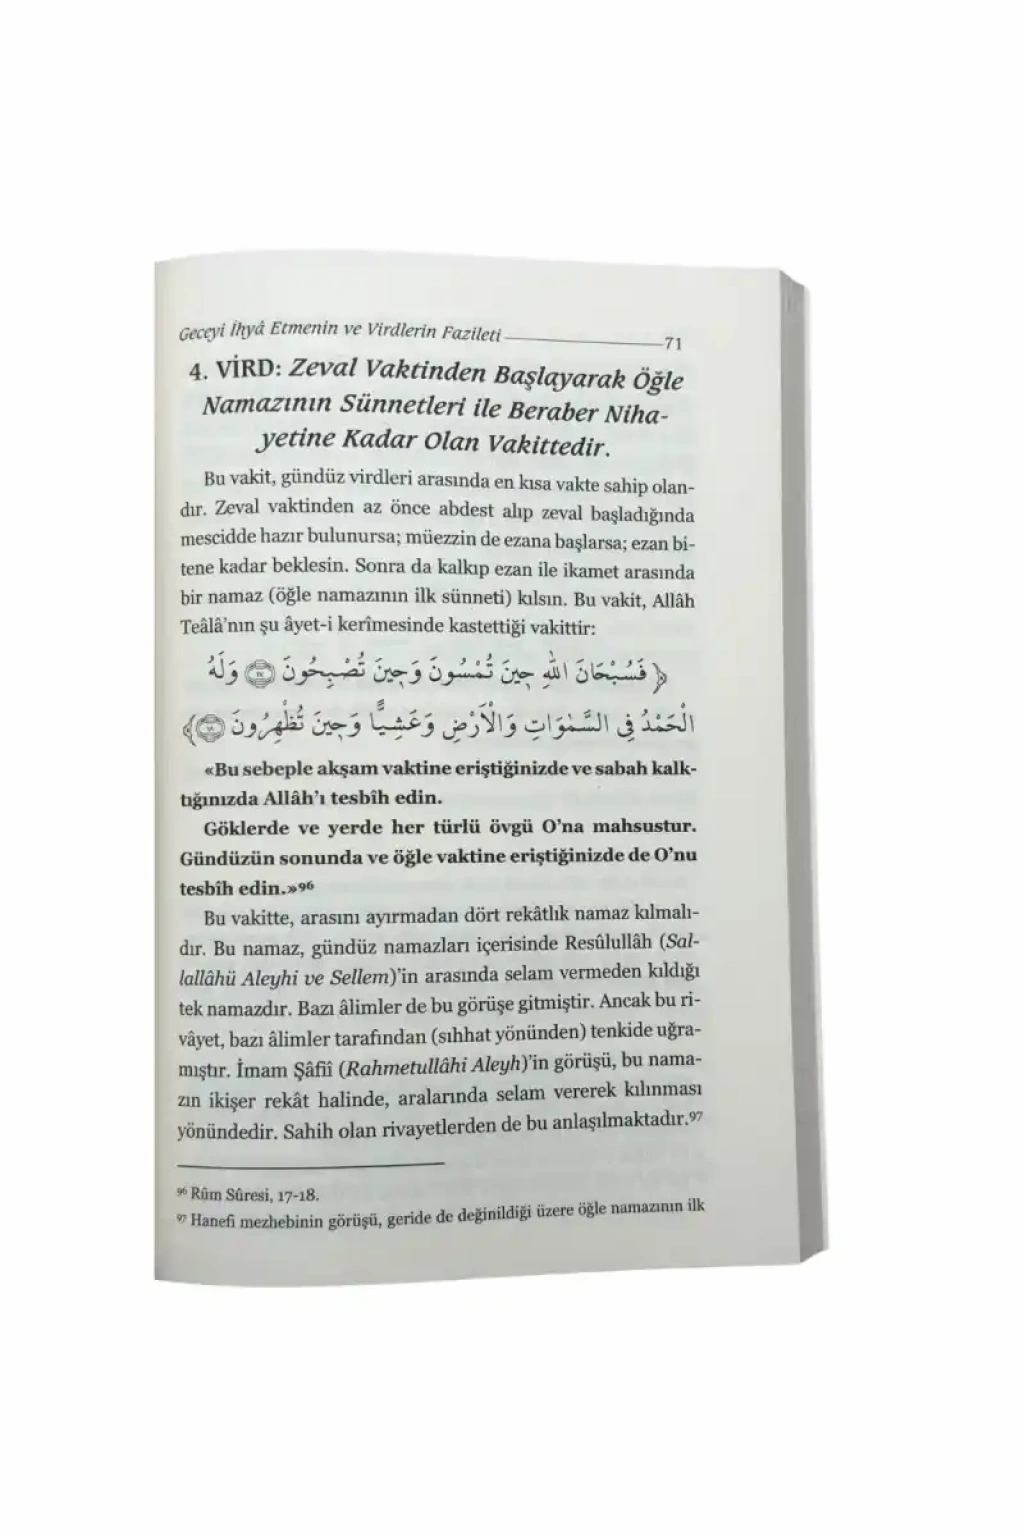 Geceyi İhyâ Etmenin ve Virdlerin Fazileti 71
4. VİRD: Zeval Vaktinden Başlayarak Öğle
Namazının Sünnetleri ile Beraber Niha-
yetine Kadar Olan Vakittedir.
Bu vakit, gündüz virdleri arasında en kısa vakte sahip olan-
dır. Zeval vaktinden az önce abdest alıp zeval başladığında
mescidde hazır bulunursa; müezzin de ezana başlarsa; ezan bi-
tene kadar beklesin. Sonra da kalkıp ezan ile ikamet arasında
bir namaz (öğle namazının ilk sünneti) kılsın. Bu vakit, Allâh
Teâlâ'nın şu âyet-i kerîmesinde kastettiği vakittir:
﴿ فَسُبْحَانَ اللّٰهِ حِينَ تُمْسُونَ وَحِينَ تُصْبِحُونَ ﴿١٧﴾ وَلَهُ
الْحَمْدُ فِي السَّمٰوَاتِ وَالْاَرْضِ وَعَشِيًّا وَحِينَ تُظْهِرُونَ ﴿١٨﴾﴾
«Bu sebeple akşam vaktine eriştiğinizde ve sabah kalk-
tığınızda Allâh'ı tesbîh edin.
Göklerde ve yerde her türlü övgü O'na mahsustur.
Gündüzün sonunda ve öğle vaktine eriştiğinizde de O'nu
tesbîh edin.»⁹⁶
Bu vakitte, arasını ayırmadan dört rekâtlık namaz kılmalı-
dır. Bu namaz, gündüz namazları içerisinde Resûlullâh (Sal-
lallâhü Aleyhi ve Sellem)'in arasında selam vermeden kıldığı
tek namazdır. Bazı âlimler de bu görüşe gitmiştir. Ancak bu ri-
vâyet, bazı âlimler tarafından (sıhhat yönünden) tenkide uğra-
mıştır. İmam Şâfiî (Rahmetullâhi Aleyh)'in görüşü, bu nama-
zın ikişer rekât halinde, aralarında selam vererek kılınması
yönündedir. Sahih olan rivayetlerden de bu anlaşılmaktadır.⁹⁷
⁹⁶ Rûm Sûresi, 17-18.
⁹⁷ Hanefi mezhebinin görüşü, geride de değinildiği üzere öğle namazının ilk